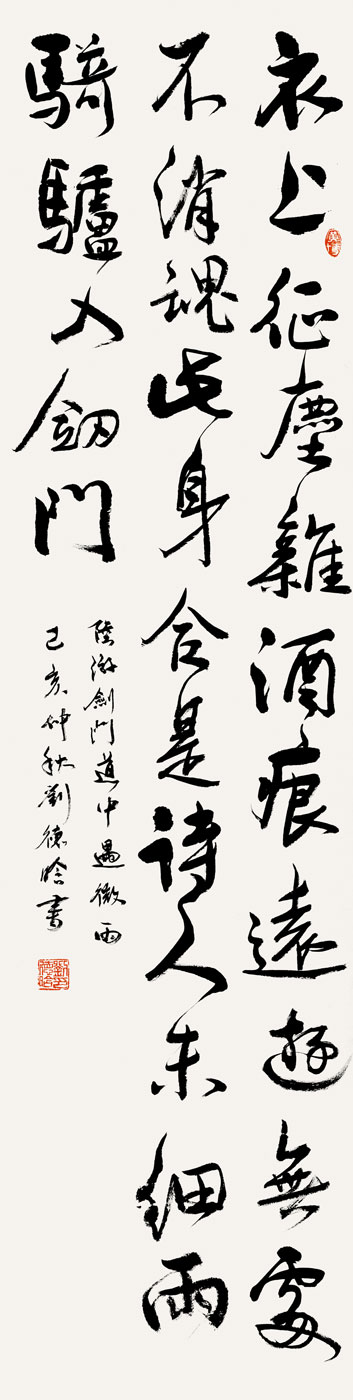 衣上征塵雜酒痕遠遊無處
不消魂此身合是詩人未細雨
騎驢入劒門
陸游劍門道中遇微雨
己亥仲秋劉德唅書